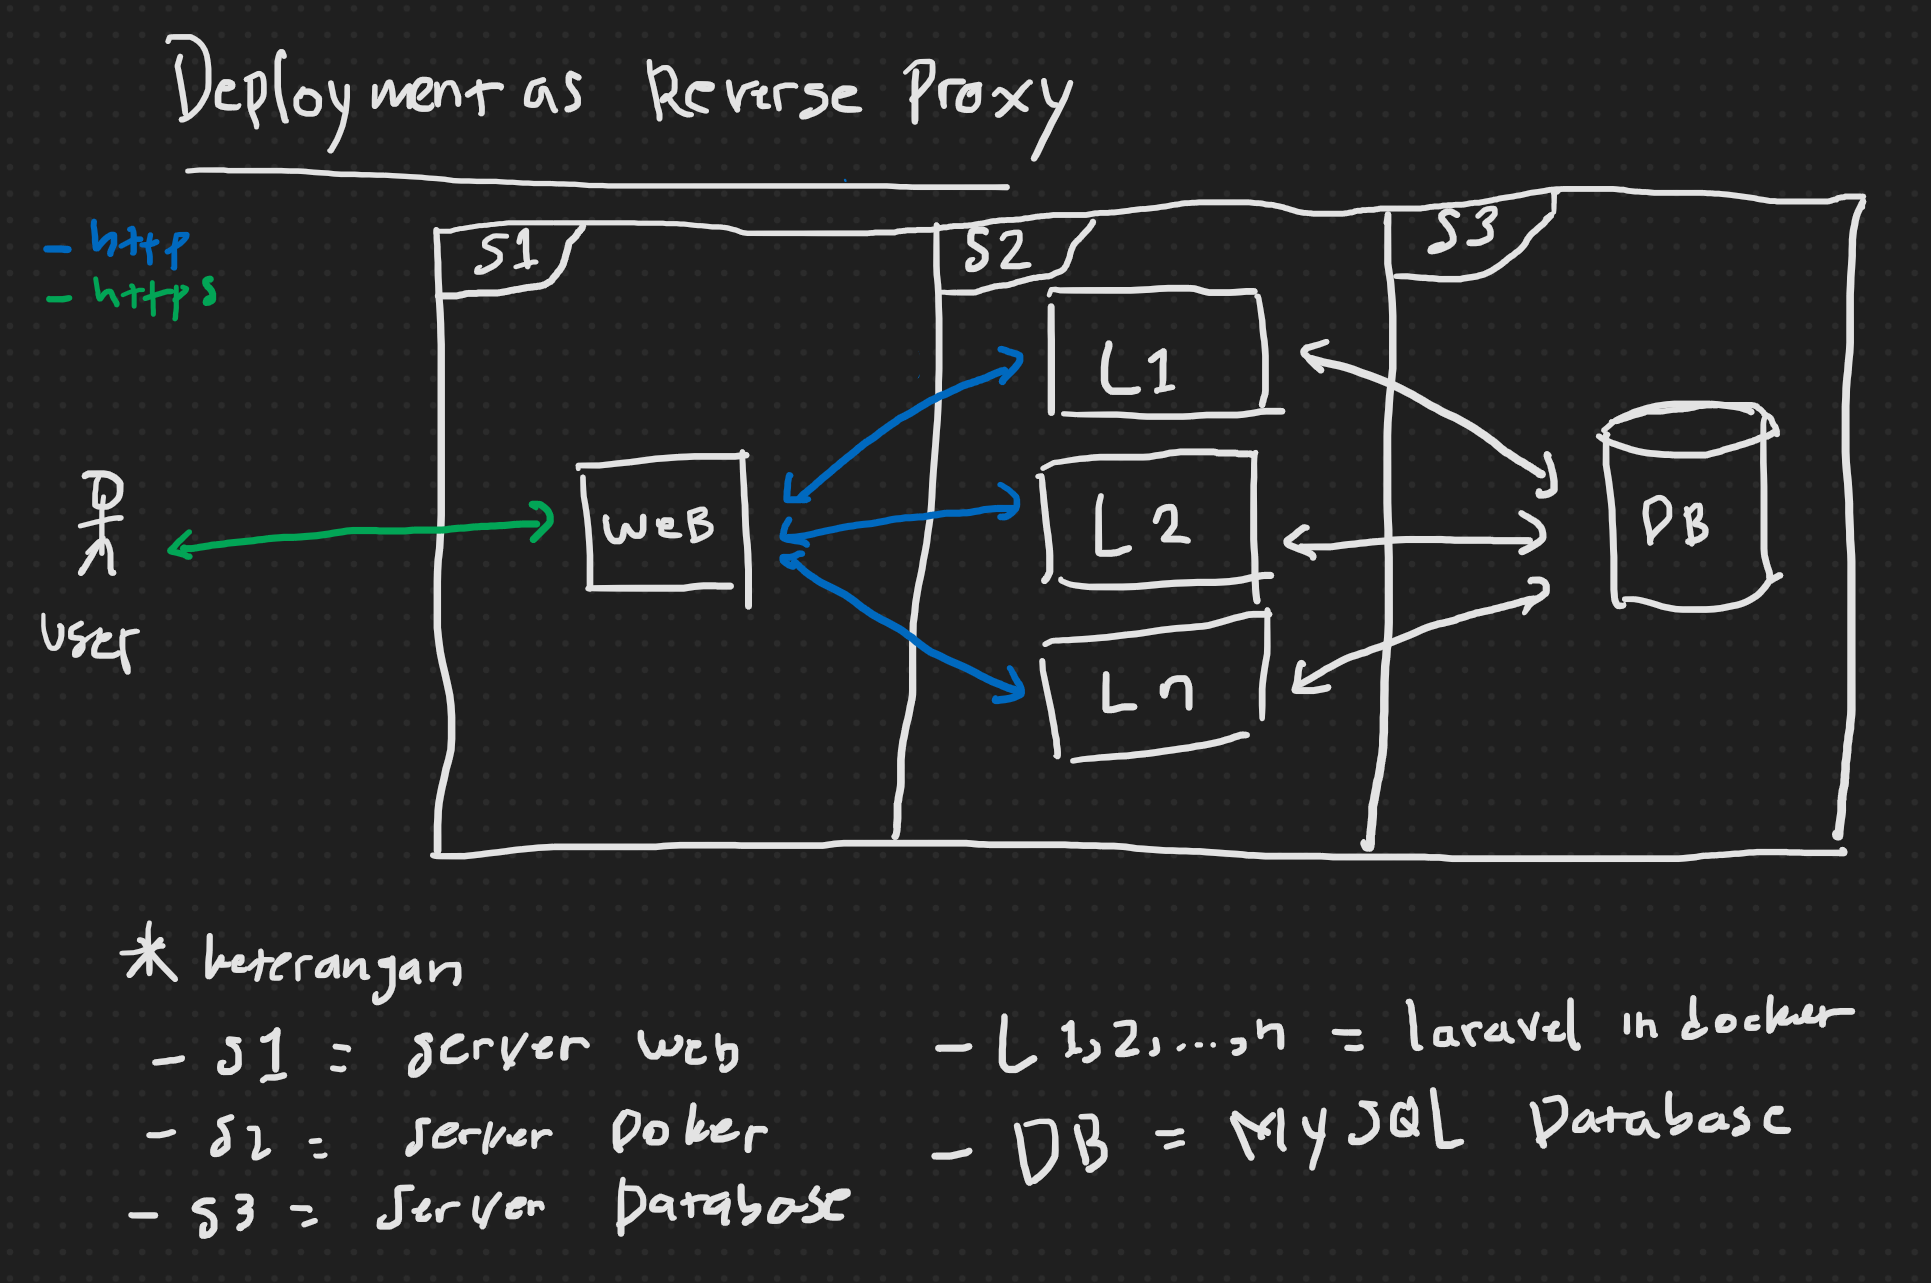 Deployment as Reverse Proxy
- http
- https
S1
S2
S3
L1
L2
Ln
WEB
DB
user
* keterangan
- S1 = server web
- S2 = server Doker
- S3 = Server Database
- L 1,2,...,n = laravel in docker
- DB = MySQL Database